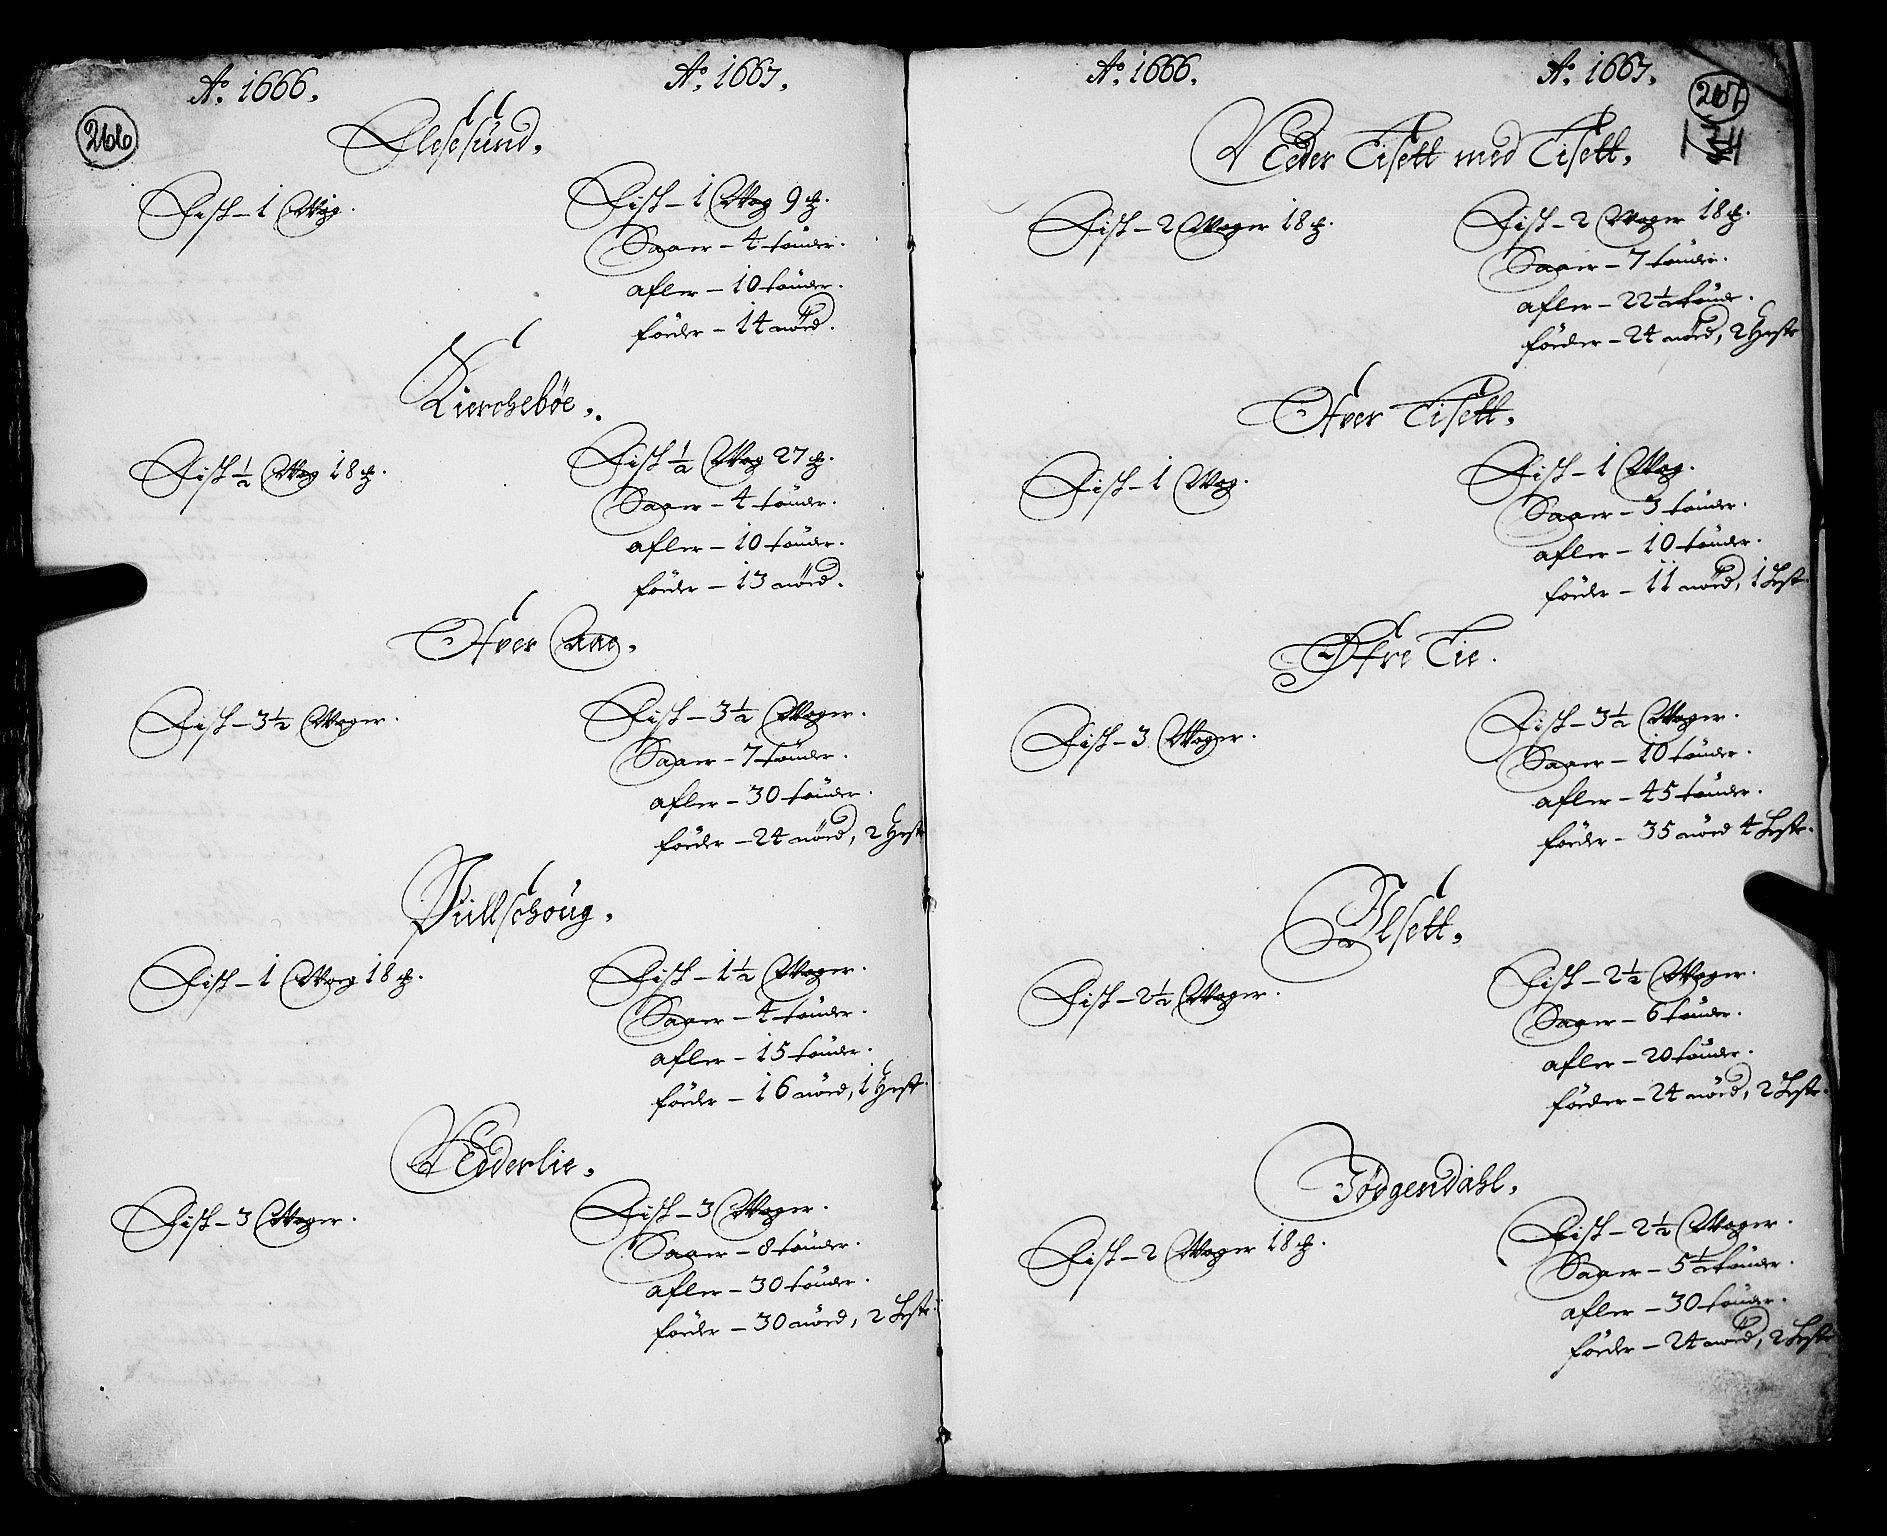 266
Ao. 1666. Ao. 1667.
Olesesund.
Fisk – 1 Wog. Fisk – 1 Wog 9 ℔.
Saaer – 4 tönder.
afler – 10 tönder.
föder – 14 nöed.
Kierchebøe.
Fisk ½ Wog 18 ℔. Fisk ½ Wog 27 ℔.
Saaer – 4 tönder.
afler – 10 tönder.
föder – 13 nöed.
Ofver Aae.
Fisk – 3½ Woger. Fisk – 3½ Woger.
Saaer – 7 tönder.
afler – 30 tönder.
föeder – 24 nöed, 2 Heste
Füllschoug.
Fisk – 1 Wog 18 ℔. Fisk – 1½ Woger.
Saaer – 4 tönder.
afler – 15 tönder.
föeder – 16 nöed, 1 Hest.
Nedderlie.
Fisk – 3 Woger. Fisk – 3 Woger.
Saaer – 8 tönder.
afler – 30 tönder.
föeder – 30 nöed, 2 Heste.
267
Ao. 1666. Ao. 1667.
Neder Tisett med Tisett.
Fisk – 2 Woger 18 ℔. Fisk – 2 Woger 18 ℔.
Saaer – 7 tönder.
afler – 22½ tönder.
föeder – 24 nöed, 2 Heste
Ofver Tisett.
Fisk – 1 Wog. Fisk – 1 Wog.
Saaer – 3 tönder.
afler – 10 tönder.
föeder – 11 nöed, 1 Hest.
Øfre Tie.
Fisk – 3 Woger. Fisk – 3½ Woger.
Saaer – 10 tönder.
afler – 45 tönder.
föeder – 35 nöed 4 Heste.
Ilsett.
Fisk – 2½ Woger. Fisk – 2½ Woger.
Saaer – 6 tönder.
afler – 20 tönder.
föeder – 24 nöed, 2 Heste.
Jødgendahl.
Fisk – 2 Woger 18 ℔. Fisk – 2½ Woger.
Saaer – 5½ tönder.
afler – 30 tönder.
föeder – 24 nöed, 2 Heste